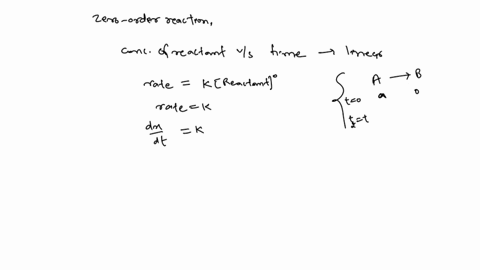 Zero-order reaction,
conc. of reactant v/s time → linear
rate = K[Reactant]⁰
A → B
rate = K
t=0 a 0
t=t
dx/dt = K